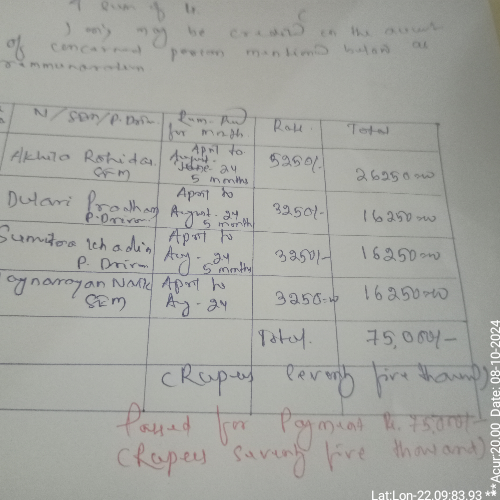 a sum of
) only may be credited in the account
of concerned person mentioned below as
remmunaration
N/SEM/P.Driv. Rem. Due for month Rate. Total
Akhita Rohidas SEM April to August - 24 5 months 5250/- 26250=00
Dulari Pradhan P.Driver April to August - 24 5 months 3250/- 16250=00
Sumitra Khadia P. Driver April to Aug - 24 5 month 3250/- 16250=00
Naik SEM April to Ag - 24 3250=00 16250=00
Total. 75,000/-
(Rupees seventy five thousand)
Passed for Payment Rs. 75,000/-
(Rupees Seventy five thousand)
Lat:Lon-22.09:83.93 **Acur:20.00 Date: 08-10-2024